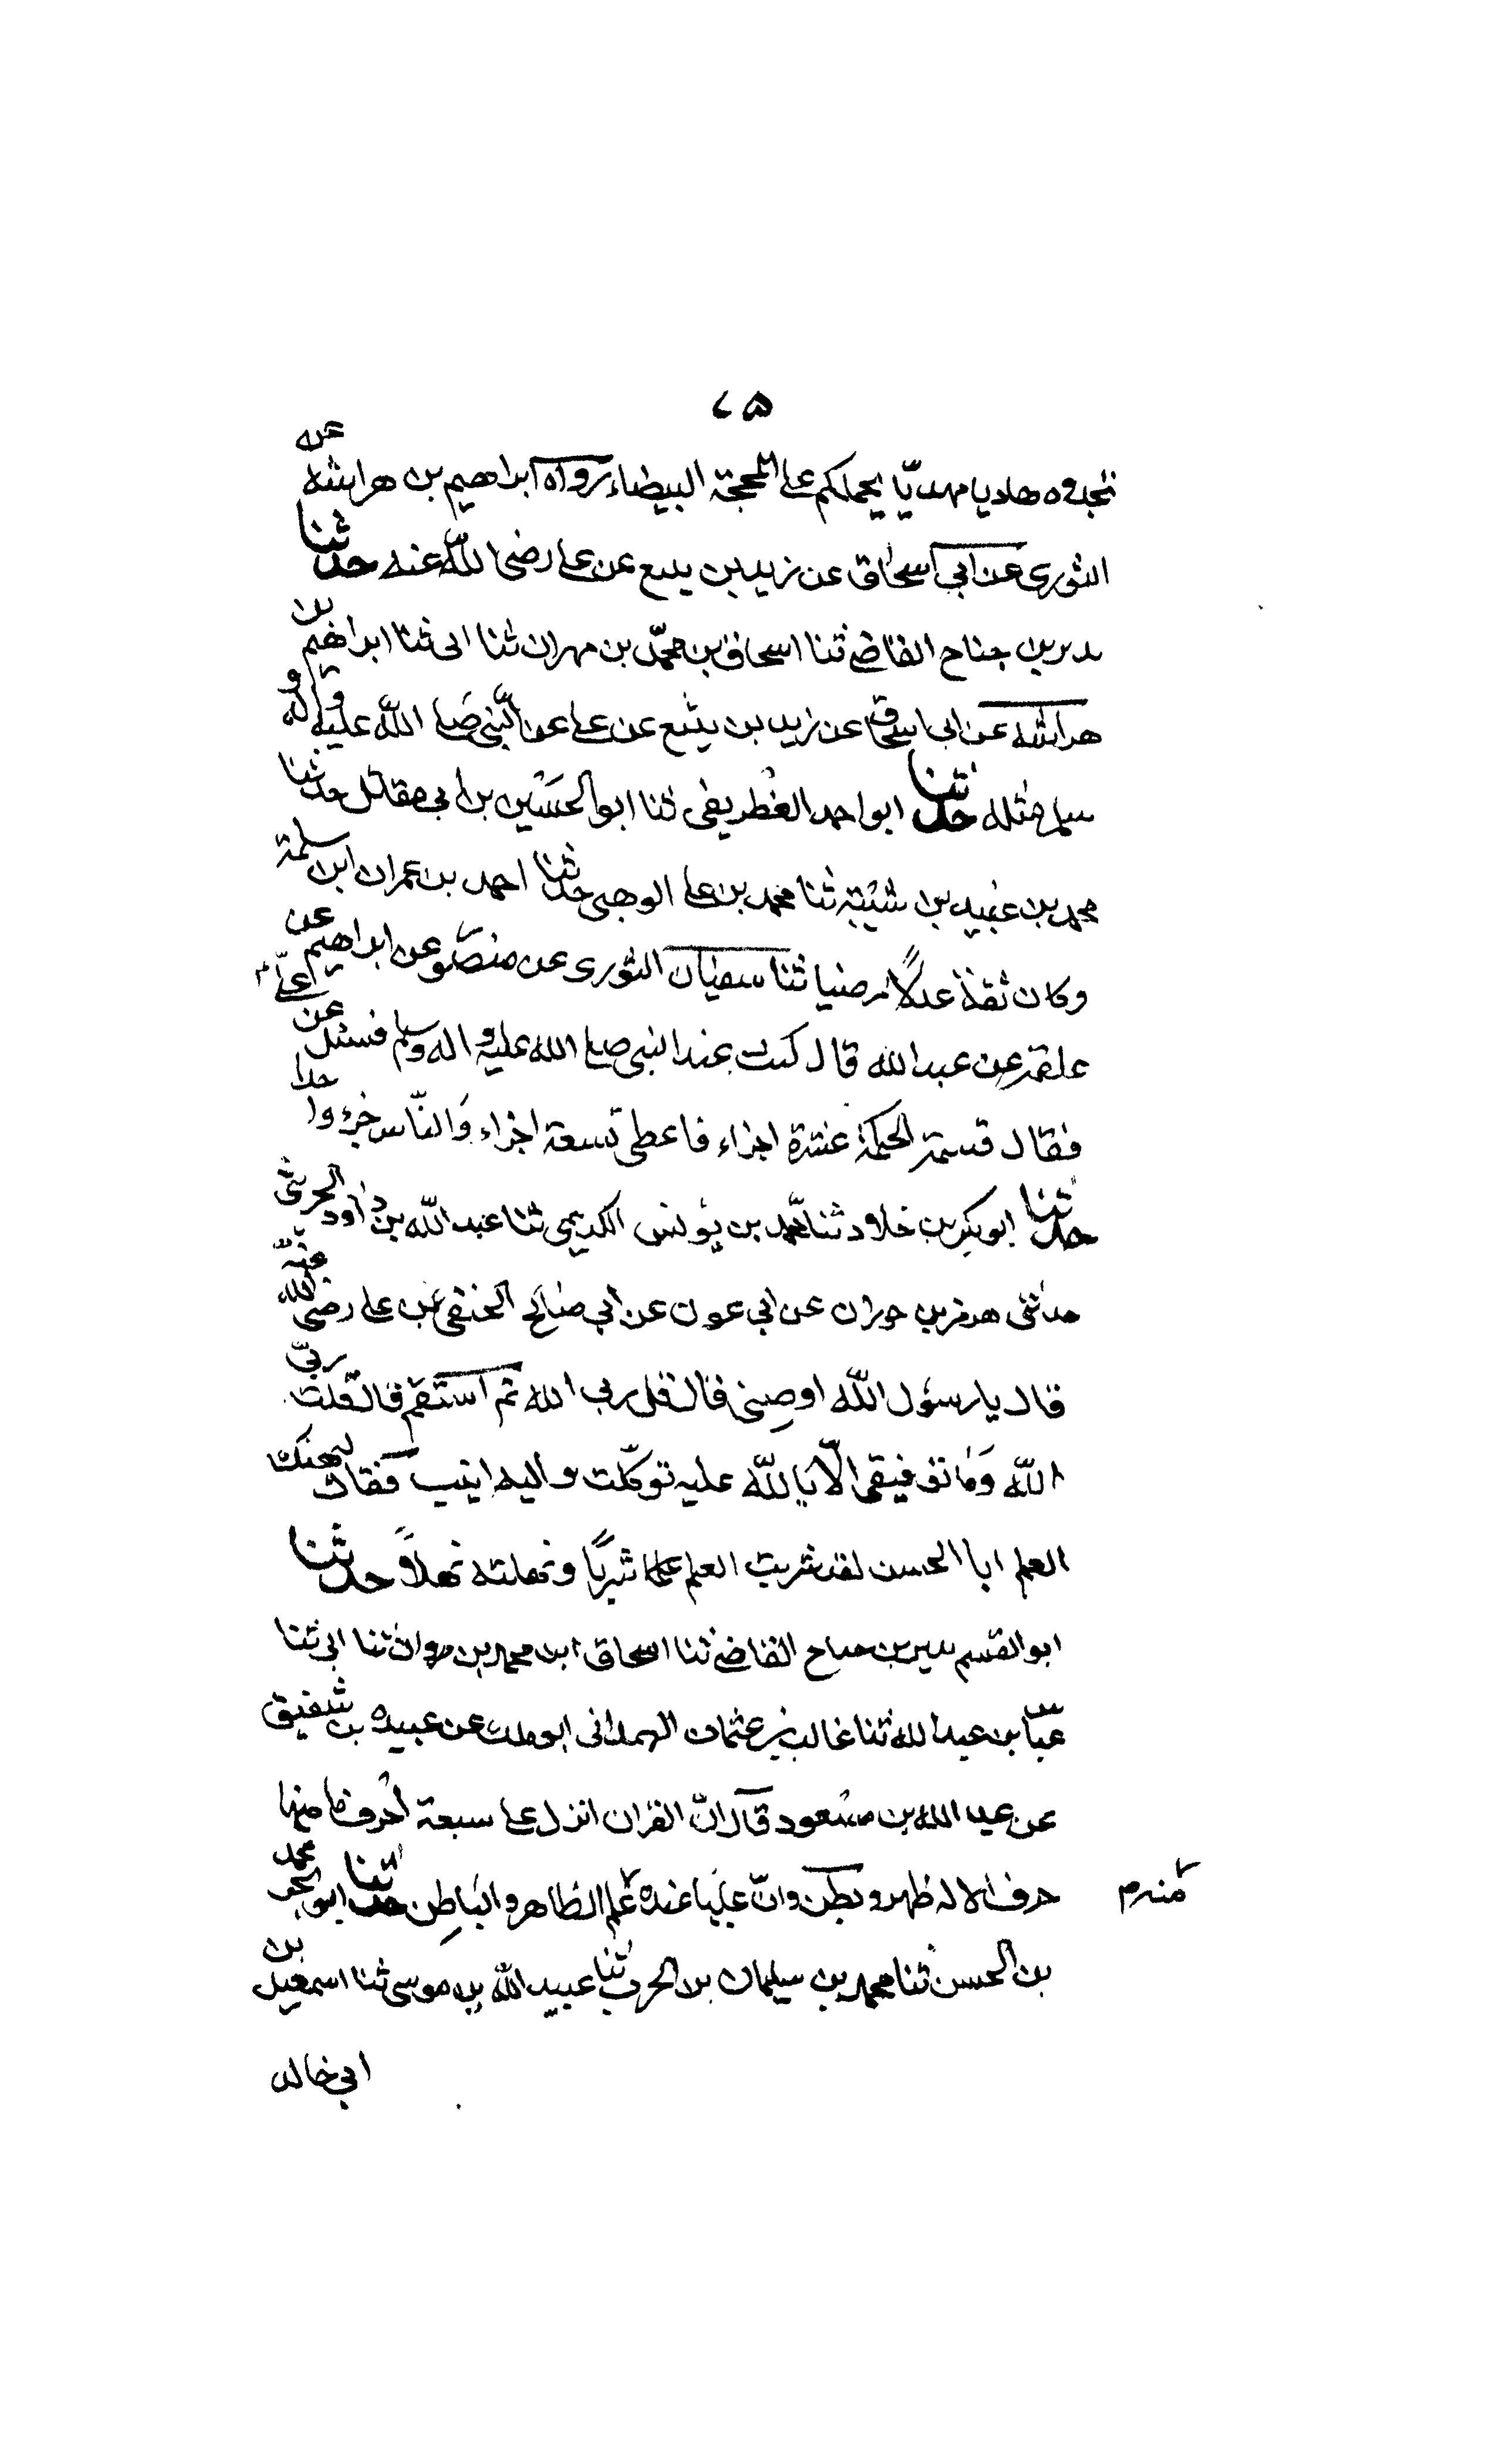 ٧٥
تجدوه هاديا مهديّا يحملكم على المحجة البيضاء رواه ابراهيم بن هراشه عن
الثورى عن ابى اسحاق عن زيد بن يسع عن على رضى الله عنه حدثنا
بدير بن جناح القاضى ثنا اسحاق بن محمّد بن مهران ثنا ابى ثنا ابراهيم بن
هراشه عن ابى اسحاق عن زيد بن يثيع عن على عن النّبى صلى الله عليه واله و
سلم مثله حدثنا ابو احمد الغطريفى ثنا ابو الحسين بن ابى مقاتل حدثنا
محمد بن عبيد بن شيبة ثنا محمد بن على الوهبى حدثنا احمد بن عمران ابن سلمة
وكان ثقة عدلاً مرضيا ثنا سفيان الثورى عن منصور عن ابراهيم عن
علقمة عن عبد الله قال كنت عند النبى صلى الله عليه واله وسلم فسئل عن علىّ
فقال قسمة الحكمة عشرة اجزاء فاعطى تسعة اجزاء والنّاس جزءوا حدا
حدثنا ابو بكر بن خلاد ثنا محمد بن يونس الكديمى ثنا عبد الله بن داود الحريثى
حدثنى هرمز بن حوران عن ابى عون عن ابى صالح الحنفى عن على رضى الله عنه
قال يا رسول الله اوصنى قال قل ربى الله ثم استقم قال قلت ربىّ
الله وما توفيقى الّا بالله عليه توكّلت واليه انيب فقال ليهنك
العلم ابا الحسن لقد شربت العلم علما شربًا ونهلته نهلاً حدثنا
ابو القسم بدير بن جناح القاضى ثنا اسحاق ابن محمد بن مروان ثنا ابى ثنا
عبّاس بن عبيد الله ثنا غالب بن عثمان الهمدانى ابو ملك عن عبيده بن شقيق
عن عبد الله بن مسعود قال انّ القران انزل على سبعة احرف ما منها
حرف الا له ظهر وبطن وانّ عليا عنده علم الظاهر والباطن حدثنا ابو الحر محمد
بن الحسن ثنا محمد بن سليمان بن الحرث ثنا عبيد الله بن موسى ثنا اسمعيل بن
ابى خالد